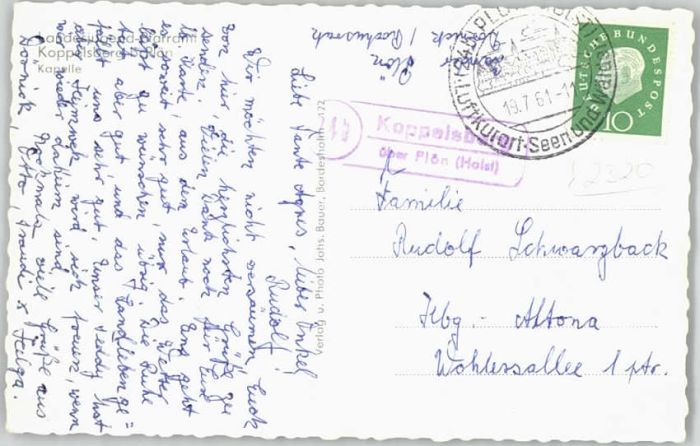 Landesjugend-Pfarramt
Koppelsberg b. Plön
Kapelle
Plön
Liebe Tante Agnes, lieber Onkel
Rudolf!
Wir möchten nicht versäumen Euch
von hier, die herzlichsten Grüße zu
senden. Vielen Dank noch für Eure
l. Karte, aus dem Urlaub. Uns geht
es soweit sehr gut, nur das Wetter
läßt zu wünschen übrig. Die Ruhe
tut aber gut und das Landleben ge-
fällt uns sehr gut. Unser Teddy hat
Heimweh, er wird sich freuen, wenn
wir wieder daheim sind.
Nochmals viele Grüße aus
Dörnick, Otto, Traudi u. Helga.
Verlag u. Photo Johs. Bauer, Bordesholm 322
Koppelsberg
über Plön (Holst)
19.7.61-11
Luftkurort-Seen und Wälder
DEUTSCHE BUNDESPOST
10
2320
Familie
Rudolf Schwarzback
Hbg. - Altona
Wohlersallee 1 ptr.